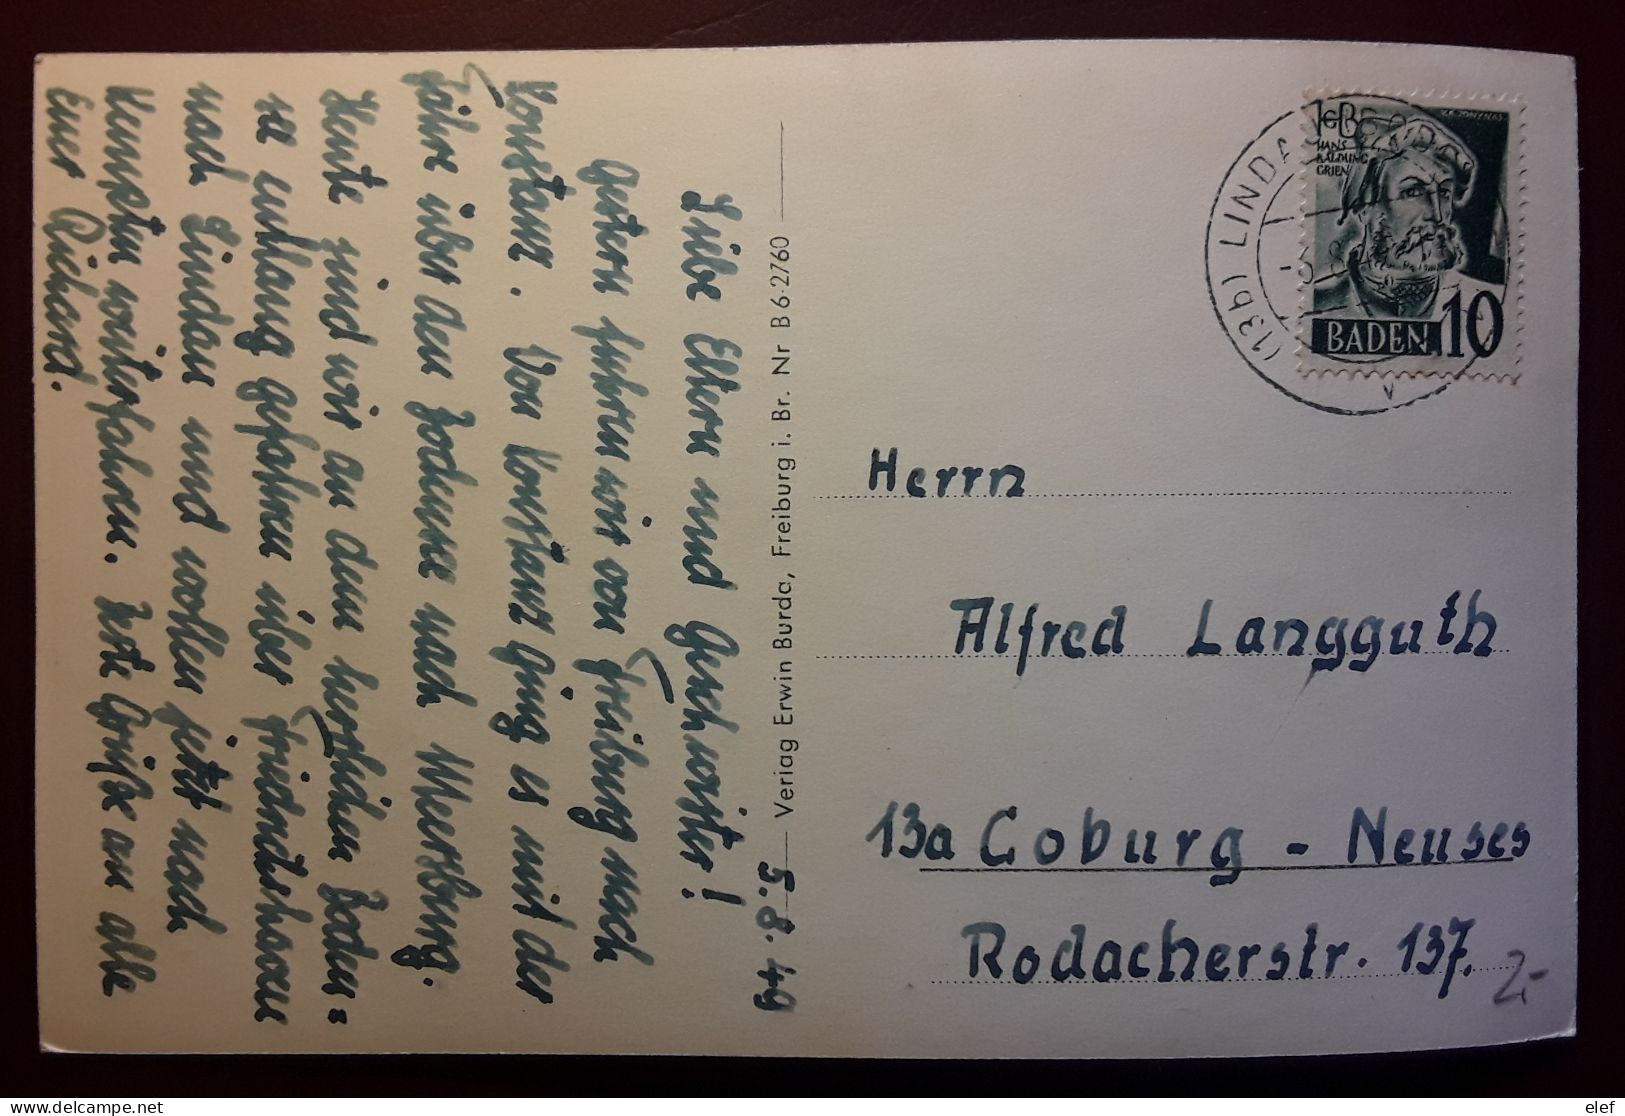 5.8.49
Liebe Eltern und Geschwister!
Gestern fuhren wir von Freiburg nach
Konstanz. Von Konstanz ging es mit der
Fähre über den Bodensee nach Meersburg.
Heute sind wir an dem herrlichen Boden=
se entlang gefahren über Friedrichshafen
nach Lindau und wollen jetzt nach
Kempten weiterfahren. Beste Grüße an alle
Euer Richard.
Verlag Erwin Burda, Freiburg i. Br. Nr B 6·2760
(13b) LINDAU
HANS
BALDUNG
GRIEN
BADEN 10
Herrn
Alfred Langguth
13a Coburg - Neuses
Rodacherstr. 137.
2,-
elef